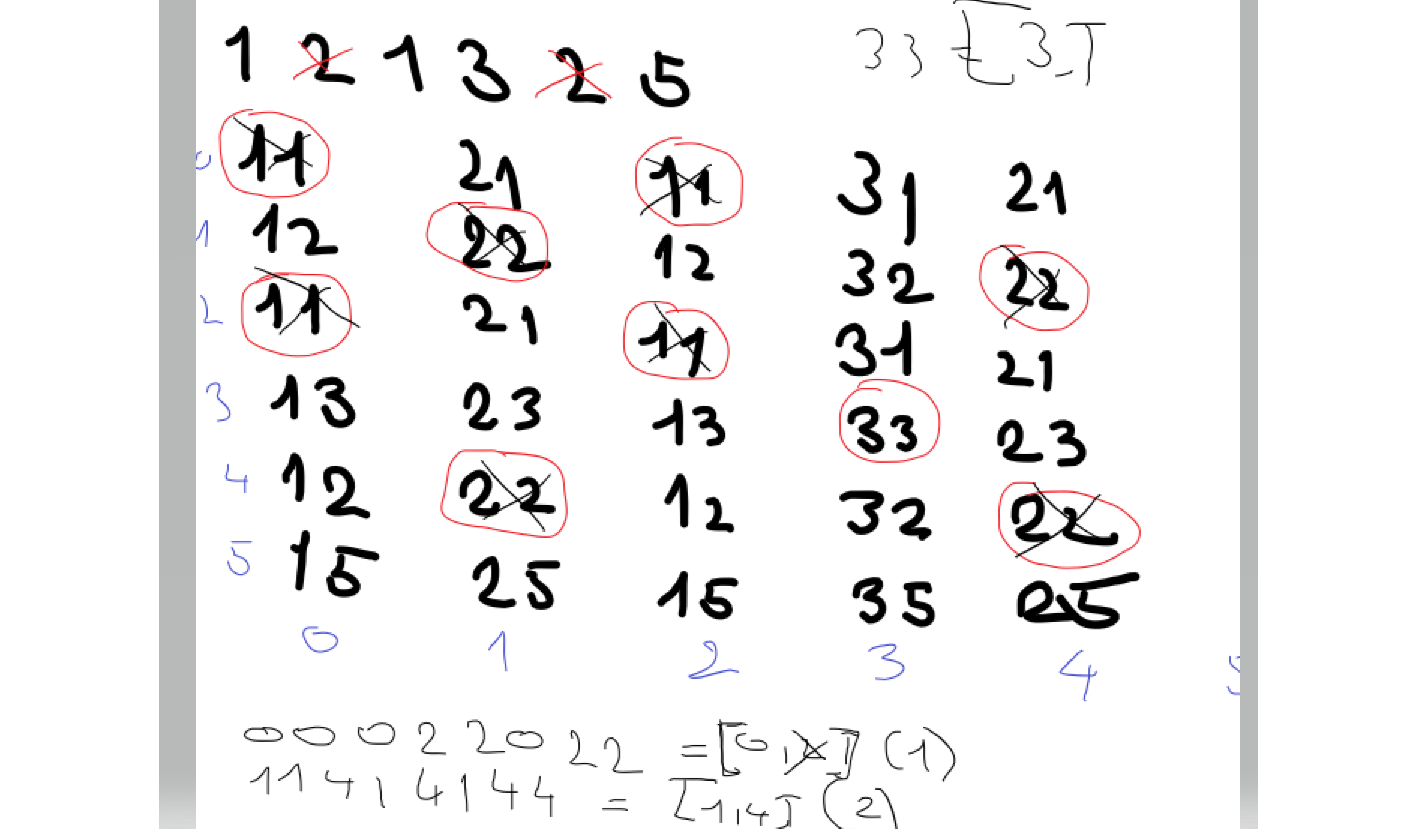 1 2 1 3 2 5 33 = [3.]
0 11 21 11 31 21
1 12 22 12 32 22
2 11 21 11 31 21
3 13 23 13 33 23
4 12 22 12 32 22
5 15 25 15 35 25
0 1 2 3 4
0 0 0 2 2 0 2 2 = [0, ] (1)
1 1 4 1 4 1 4 4 = [1,4] (2)